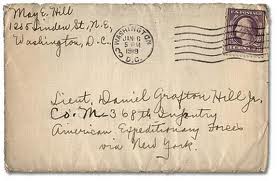 May E. Hill
1205 Linden St, N.E,
Washington, D.C.
WASHINGTON
JAN 6
5 PM
1919
D.C.
U.S. POSTAGE
Lieut. Daniel Grafton Hill Jr.
Co. M- 368th Infantry
American Expeditionary Forces
via New York.